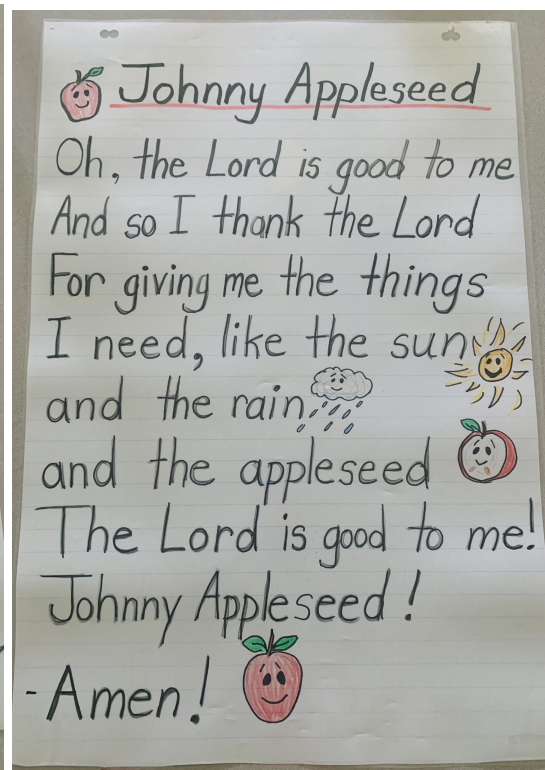 Johnny Appleseed
Oh, the Lord is good to me
And so I thank the Lord
For giving me the things
I need, like the sun
and the rain
and the appleseed
The Lord is good to me!
Johnny Appleseed!
-Amen!